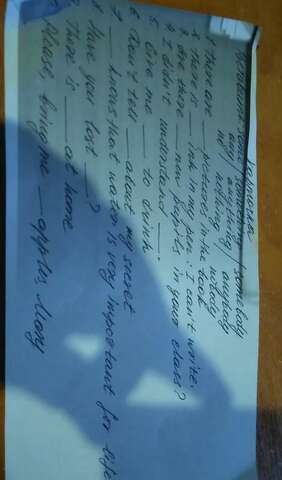 some / something / somebody
any / anything / anybody
no / nothing / nobody
1 There are ___ pictures in the book
2 There is ___ ink in my pen: I can't write.
3 Are there ___ new pupils in your class?
4 I didn't understand ___.
5. Give me ___ to drink.
6 Don't tell ___ about my secret
7 ___ knows that water is very important for life
8 Have you lost ___?
9 There is ___ at home
Please, bring me ___ apples, Mary